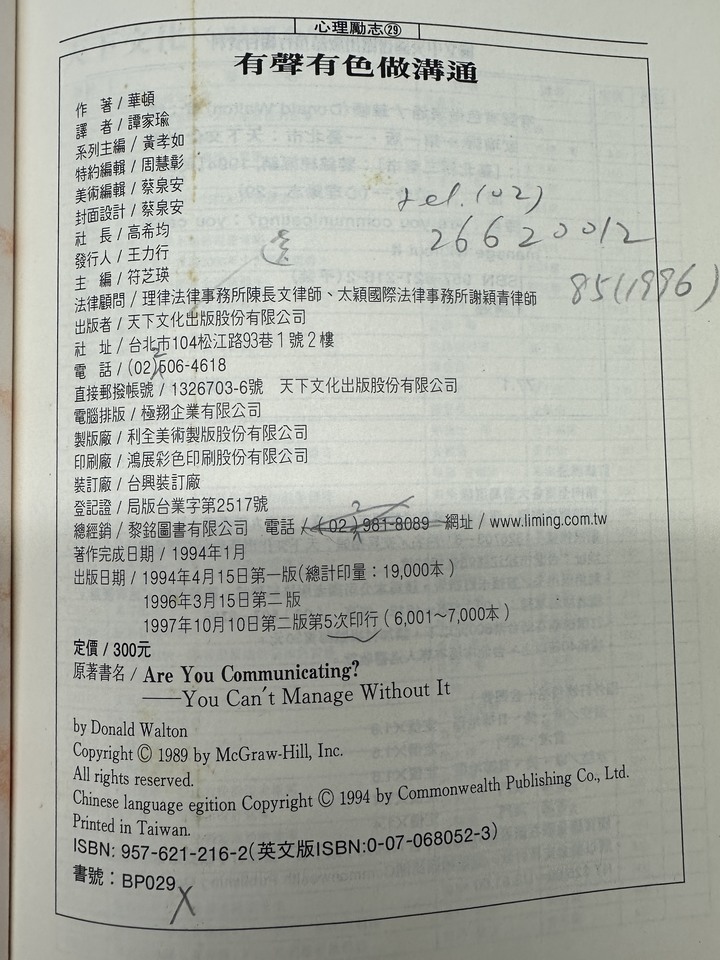 心理勵志㉙
有聲有色做溝通
作　著／華頓
譯　者／譚家瑜
系列主編／黃孝如
特約編輯／周慧彰
美術編輯／蔡泉安
封面設計／蔡泉安
tel.(02)
社　長／高希均
26620012
發行人／王力行
主　編／符芝瑛
85(1996)
法律顧問／理律法律事務所陳長文律師、太穎國際法律事務所謝穎青律師
出版者／天下文化出版股份有限公司
社　址／台北市104松江路93巷1號2樓
2
電　話／(02)506-4618
直接郵撥帳號／1326703-6號　天下文化出版股份有限公司
電腦排版／極翔企業有限公司
製版廠／利全美術製版股份有限公司
印刷廠／鴻展彩色印刷股份有限公司
裝訂廠／台興裝訂廠
登記證／局版台業字第2517號
2
總經銷／黎銘圖書有限公司　電話／(02)981-8089　網址／www.liming.com.tw
著作完成日期／1994年1月
出版日期／1994年4月15日第一版(總計印量：19,000本)
1996年3月15日第二版
1997年10月10日第二版第5次印行(6,001～7,000本)
定價／300元
原著書名／Are You Communicating?
——You Can't Manage Without It
by Donald Walton
Copyright © 1989 by McGraw-Hill, Inc.
All rights reserved.
Chinese language egition Copyright © 1994 by Commonwealth Publishing Co., Ltd.
Printed in Taiwan.
ISBN: 957-621-216-2(英文版ISBN:0-07-068052-3)
書號：BP029
X